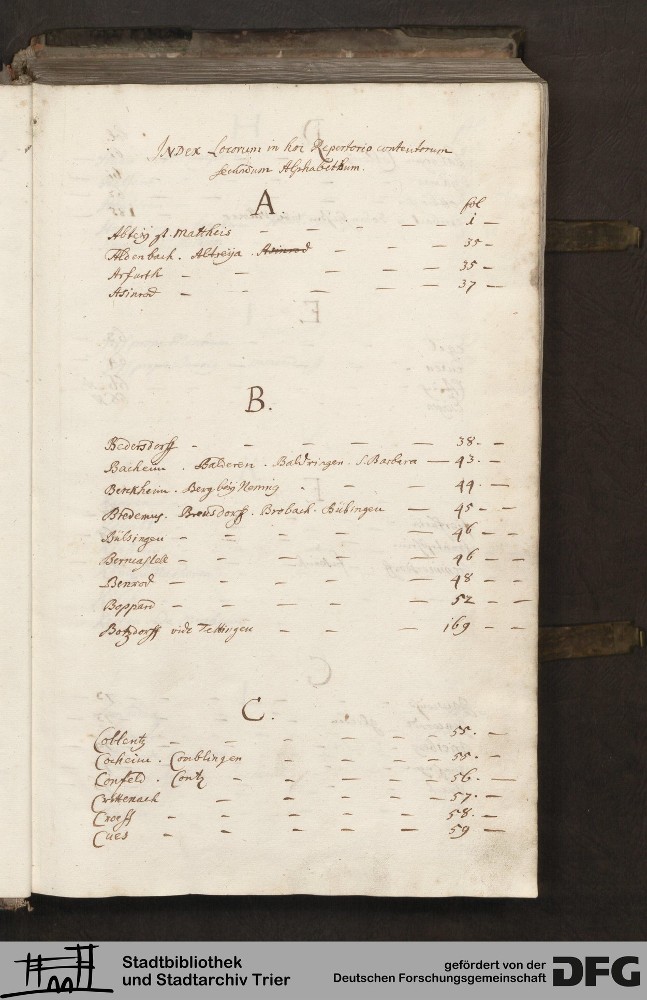 INDEX Locorum in hoc Repertorio contentorum
secundum Alphabethum.
A
fol
Abteÿ st. Mattheis — — — — 1 —
Aldenbach. Altreÿa. Asinrod — — — 35 —
Arfurth — — — — 35 —
Asinrod — — — — 37 —
B.
Bedersdorff — — — — — 38. —
Bacheim. Balderen. Baldringen. S. Barbara — 43. —
Berckheim. — — 44. —
Bredemus. Breusdorff. Brobach. Bübingen — 45 — —
Bülsingen — — — — — 46 — —
Berncastell — — — — — 46 — —
Benrod — — — — — 48 — —
Boppard — — — — — 52 — —
Botzdorff vide Tettingen — — — 169 — —
C.
Coblentz — — — — — 55. —
Cocheim. Comblingen — — — — 55 — —
Confeld. Contz — — — — 56. —
Crettenach — — — — 57. —
Croeff — — — — — 58. —
Cues — — — — — 59 —
Stadtbibliothek
und Stadtarchiv Trier
gefördert von der
Deutschen Forschungsgemeinschaft
DFG